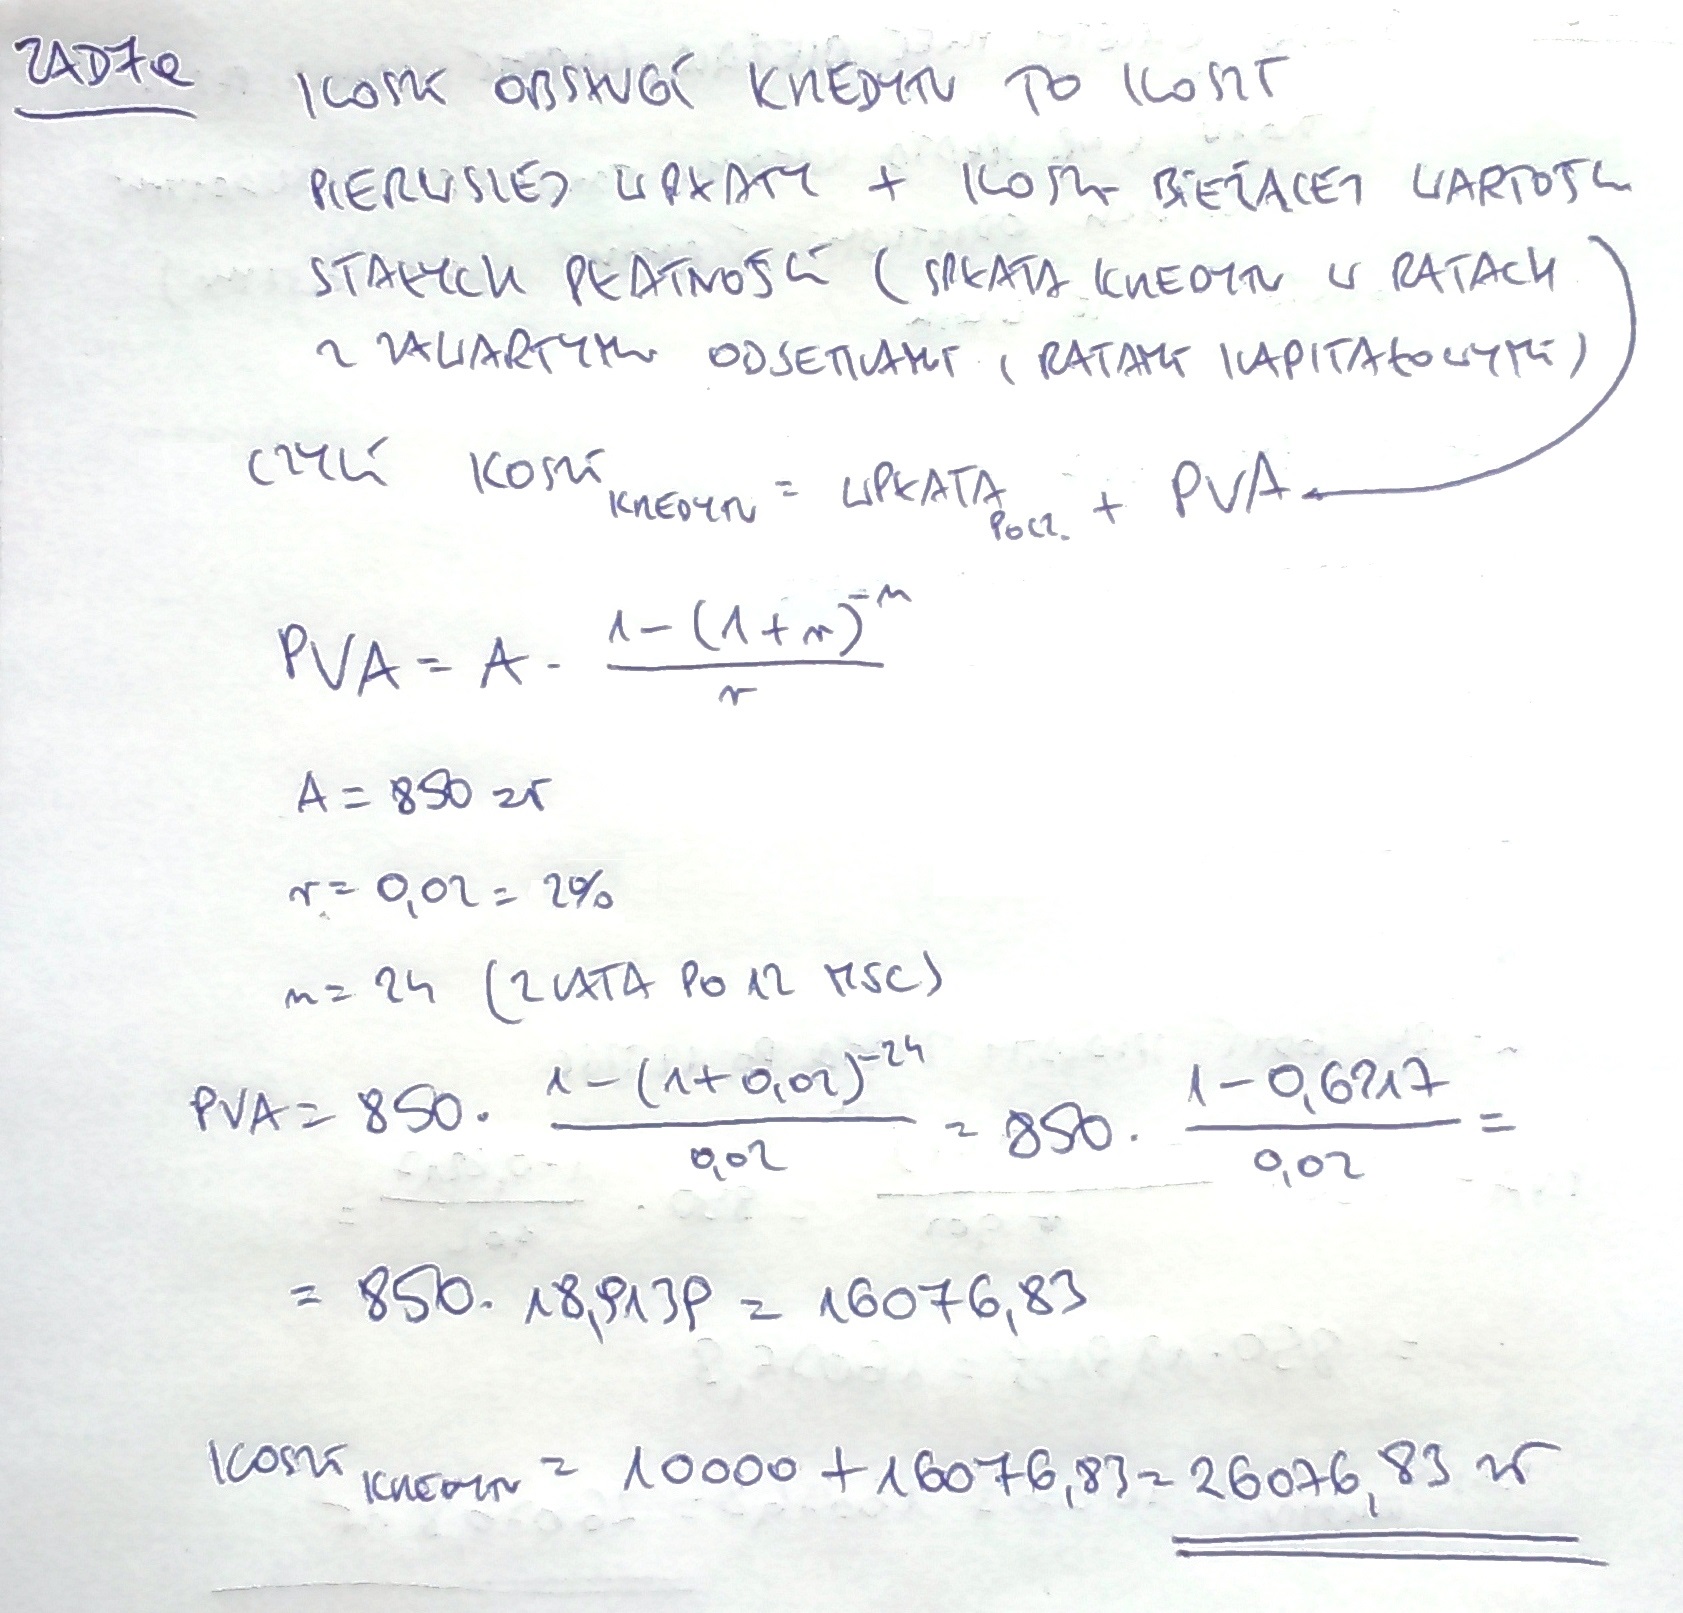 ZAD7a KOSZT OBSŁUGI KREDYTU TO KOSZT
PIERWSZEJ WPŁATY + KOSZT BIEŻĄCEJ WARTOŚCI
STAŁYCH PŁATNOŚCI (SPŁATA KREDYTU W RATACH
Z ZAWARTYMI ODSETKAMI I RATAMI KAPITAŁOWYMI)
CZYLI KOSZT KREDYTU = WPŁATA POCZ. + PVA
PVA = A · (1-(1+r)^-n)/r
A = 850 zł
r = 0,02 = 2%
n = 24 (2 LATA PO 12 MSC)
PVA = 850 · (1-(1+0,02)^-24)/0,02 = 850 · (1-0,6217)/0,02 =
= 850 · 18,9139 = 16076,83
KOSZT KREDYTU = 10000 + 16076,83 = 26076,83 zł